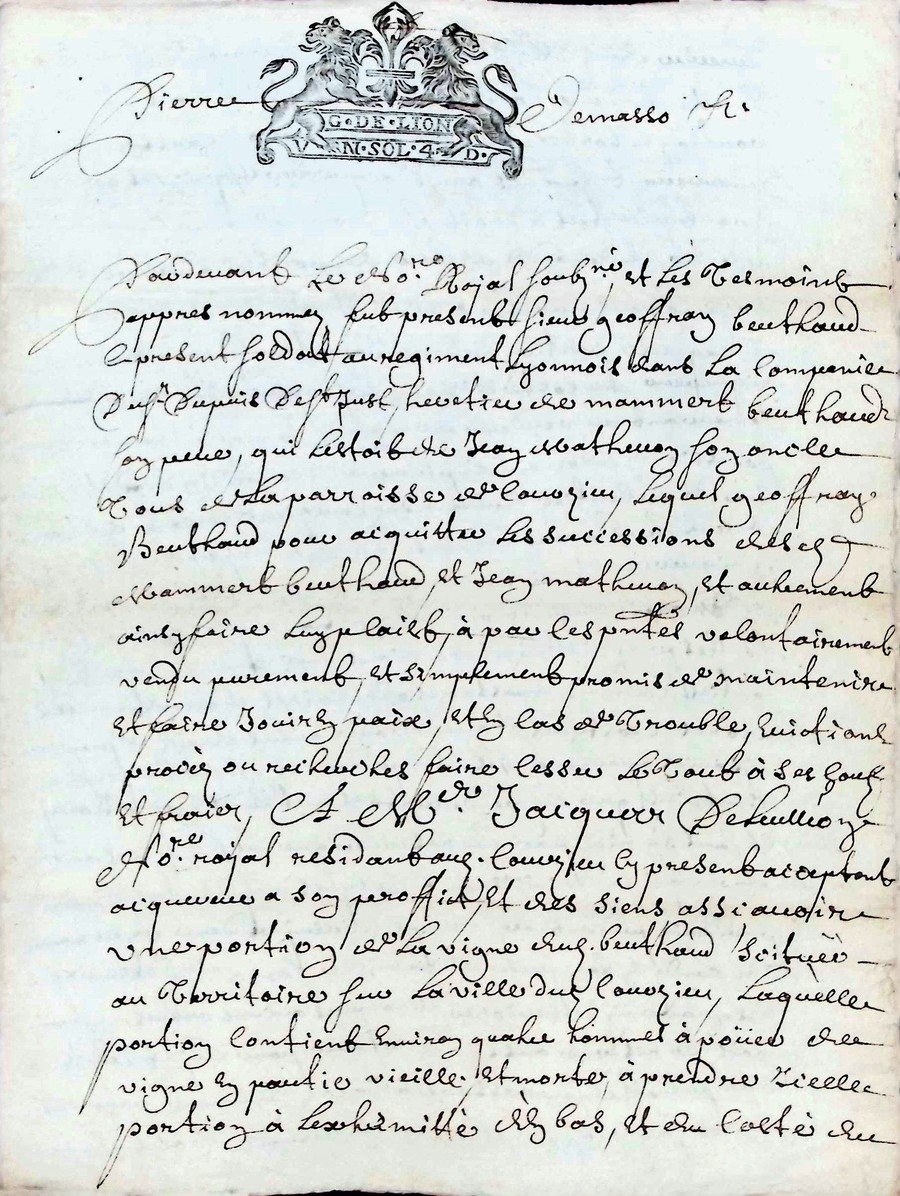 Pierre Demasso
G·DE·LION
N·SOL·4·D·
Pardevant le No.re Royal soubz.né, et les Tesmoints
appres nommez fut present sieur geoffray berthaud
a present soldat au regiment Lyonnois dans La Compagnie
Du sr. Dupuis De st. Just, heretier de mammert berthaud
son pere, qui l'estoit de Jean Mathevon son oncle
Tous de La parroisse de Couzieu, lequel geoffray
Berthaud pour acquitter les successions desd.
Mammert berthaud, et Jean mathevon, et autrement
ainsy faire luy plaist, à par les pntes volontairement
vendu purement, et simplement promis de maintenir
Et faire Jouir en paix, et en cas de Trouble, Evictions
procés ou recherches faire cesser le Tout à ses
Et fraier, A Mre Jacques
No.re royal residant aud. Couzieu cy present acceptant
acquereur a son proffict, Et des siens assçauoir
vne portion de La vigne dud. berthaud scituëe
au Territoire sur La ville dud Couzieu, Laquelle
portion Contient Environ quatre hommes à de
vigne En partie vieille, et morte, à prendre Icelle
portion à L'exthremitté d'En bas, et du Costé du